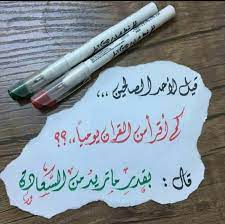 قيل لأحد الصالحين ،،،
كم أقرأ من القرآن يومياً ،،؟؟
قال : بقدر ما تريد من السعادة